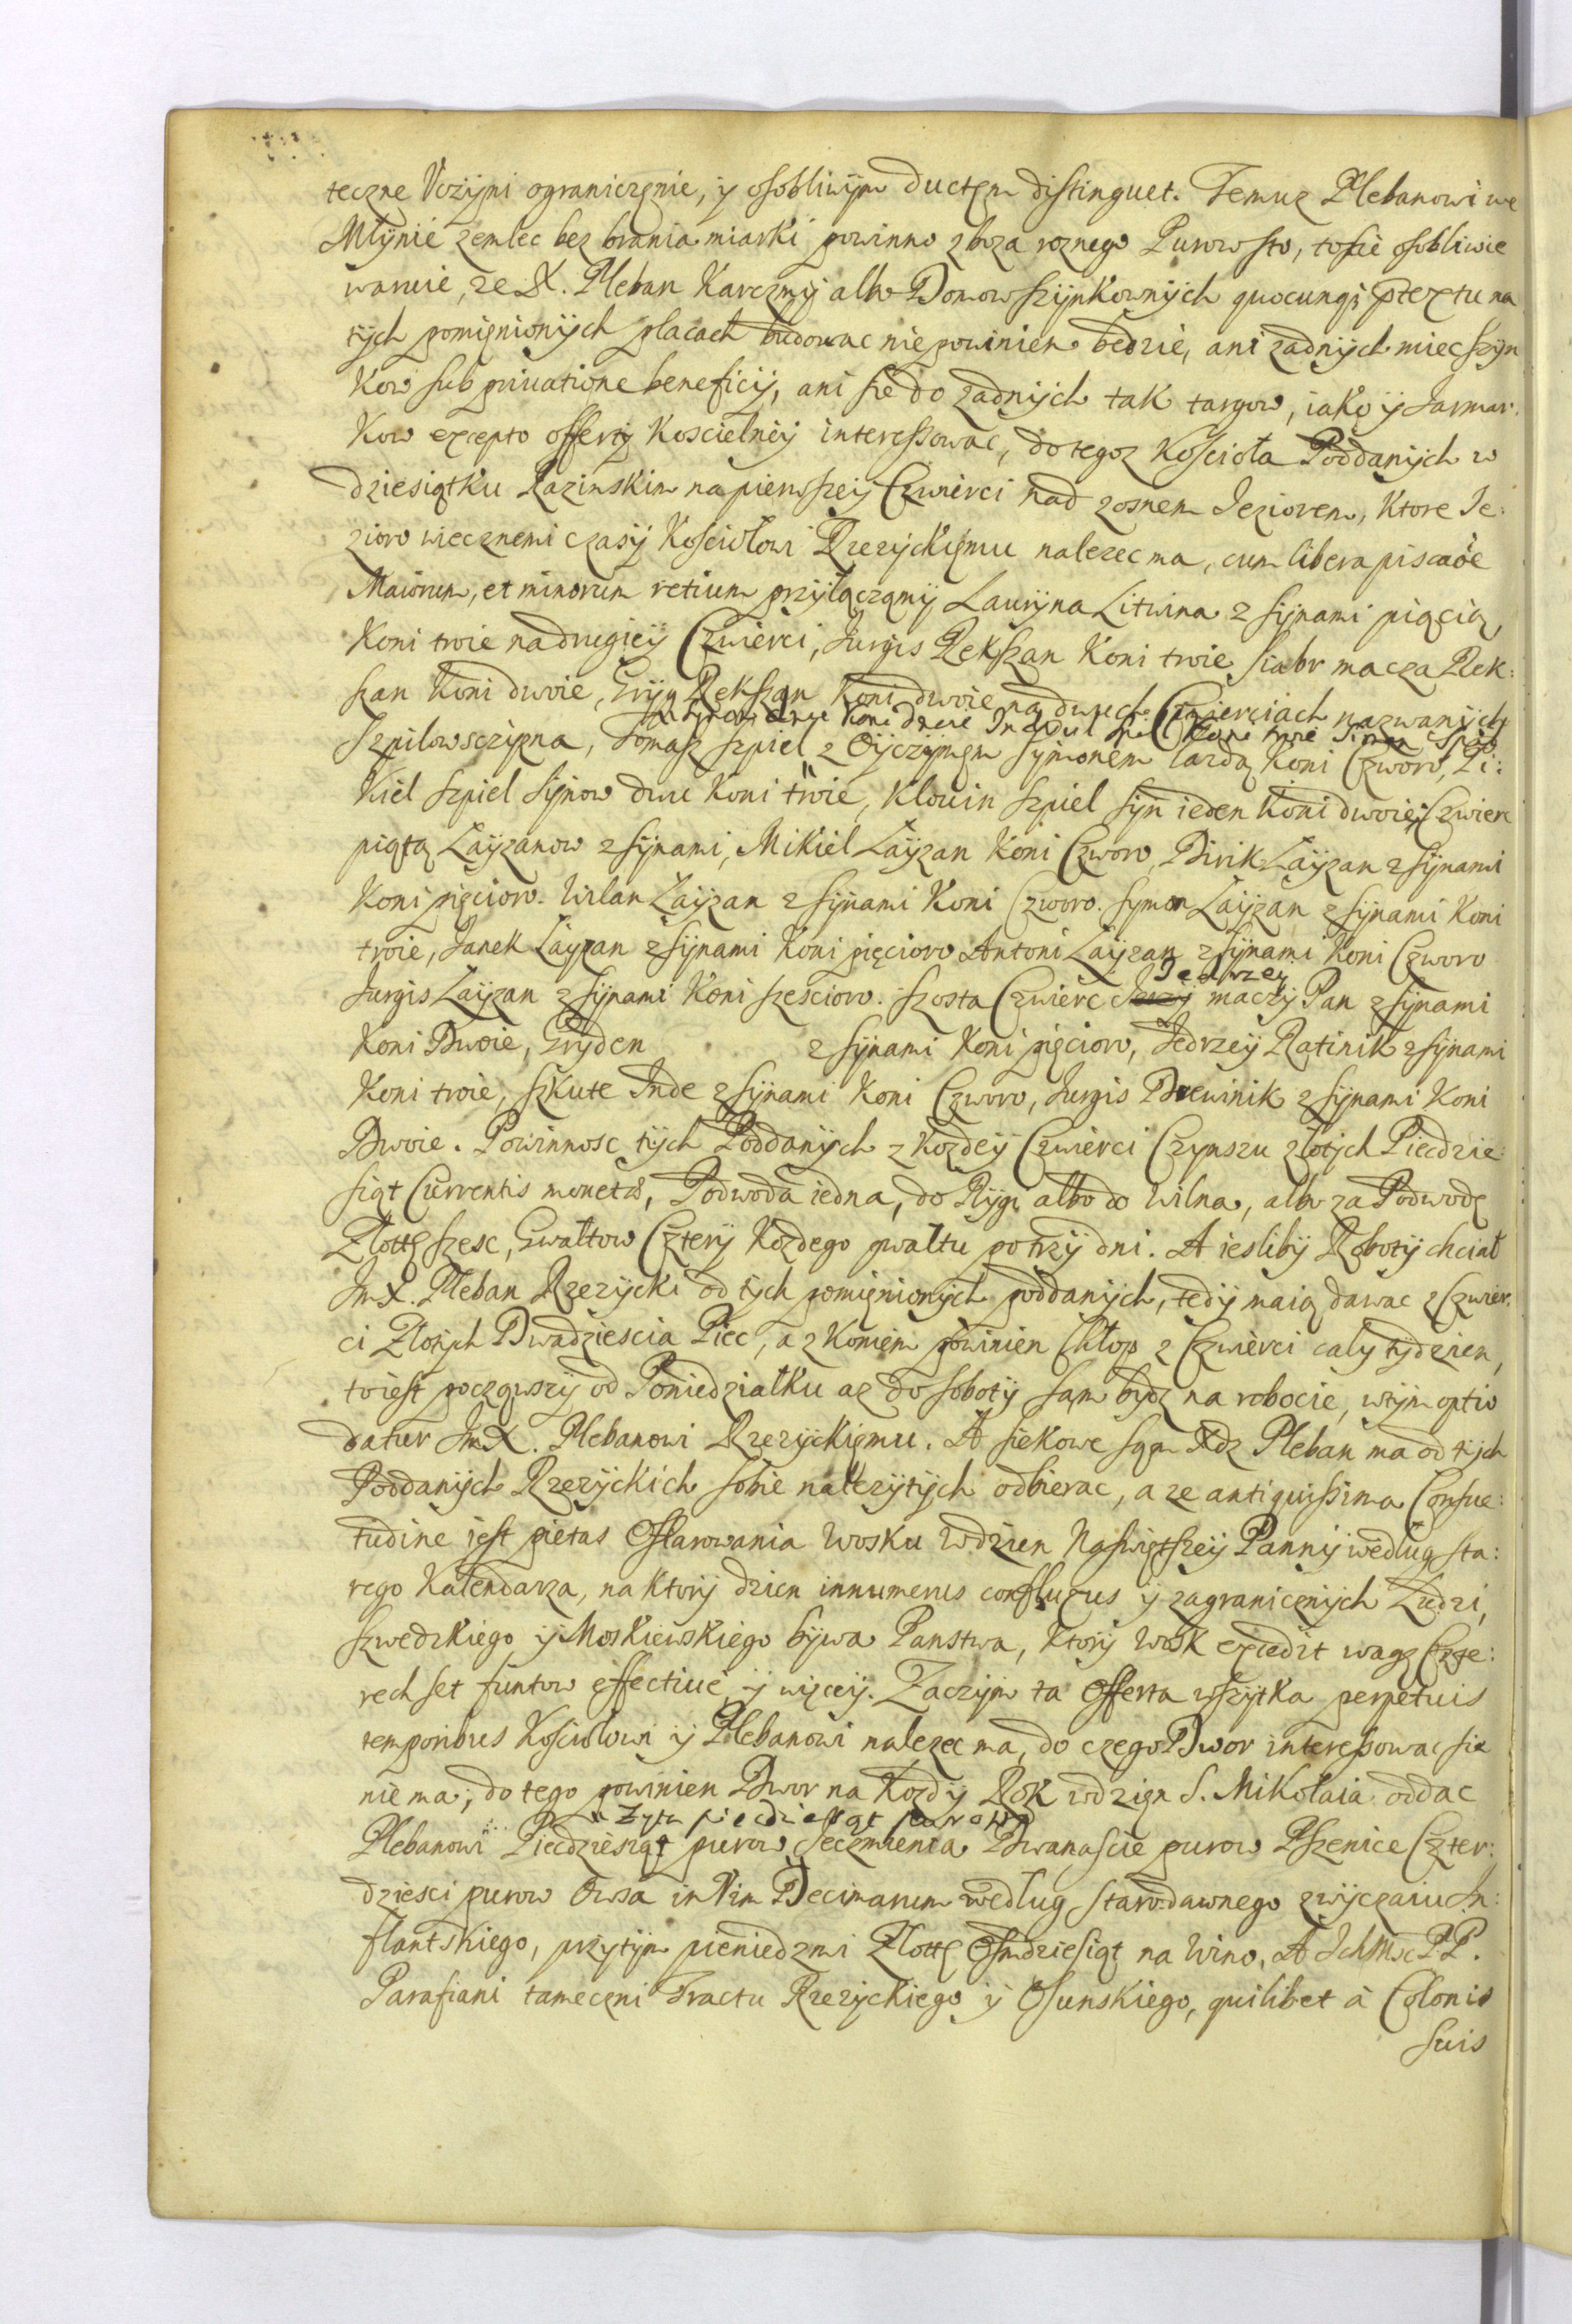 teczne Vczÿni ograniczęnie, ÿ osobliwÿm ductęm distinguet. Temuz Plebanowi we
Młÿnie zemlec bez brania miarki powinno zboza roznego Purow sto, to sie osobliwie
waruie, ze X. Pleban Karczmÿ albo Domow szÿnkownÿch quocunqȝ ptextu na
tÿch pomięnionÿch placach budowac nie powinien bedzie, ani zadnÿch miec szÿn
kow sub priuatione beneficij, ani sie do zadnÿch tak targow, iako ÿ Jarmar:
kow excepto offertÿ Koscielneÿ interessowac, do tegoz Kosciola Poddanÿch w
dziesiątku Razinskim na pierwszeÿ Czwierci nad zosnem Jeziorem, ktore Je:
zioro wiecznemi czasÿ Kosciołowi Rzezÿckięmu nalezec ma, cum libera piscaoe
Maiorum, et minorum retium przÿłączamÿ Laurÿna Litwina z sÿnami pięcią,
Koni troie na drugieÿ Czwierci, Jurgis Rekszan Koni troie siabr macza Rek:
szan Koni dwoie, Grÿg Rekszan Koni dwoie na dwuch Czwierciach nazwanÿch
Szpilowsczÿzna, Tomasz szpiel z Oÿczÿmęm sÿmonem lazdą Koni Czworo, Pi:
kiel szpiel sÿnow dwu Koni troie, Klowin szpiel sÿn ieden Koni dwoie, Czwierc
piątą Zaÿzanow z sÿnami, Mikiel Zaÿzan Koni Czworo, Dirik Zaÿzan z sÿnami
Koni pięcioro. Urlan Zaÿzan z sÿnami Koni Czworo. Symon Zaÿzan z sÿnami Koni
troie, Janek Zayzan z sÿnami Koni pięcioro Antoni Zaÿzan z sÿnami Koni Czworo
Jędrzey
Jurgis Zaÿzan z sÿnami Koni szescioro. Szosta Czwierc Jerzÿ maczÿ Pan z sÿnami
Koni Dwoie, Grÿden z sÿnami Koni pięcioro, Jedrzeÿ Ratinik z sÿnami
Koni troie, szkute Inde z sÿnami Koni Czworo, Jurgis Drewinik z sÿnami Koni
Dwoie. Powinnosc tÿch Poddanÿch z kozdeÿ Czwierci Czynszu złotÿch Piecdzie:
siąt Currentis monetæ, Podwoda iedna, do Rÿgi albo do Wilna, albo za Podwodę
Złottÿ szesc, Gwałtow Czterÿ kozdego gwałtu po trzÿ dni. A ieslibÿ Robotÿ chciał
JmX. Pleban Rzezÿcki od tÿch pomięnionÿch poddanÿch, tedÿ maią dawac z Czwier:
ci Złotÿch Dwadziescia Piec, a z koniem powinien Chłop z Czwierci calÿ tÿdzien,
to iest począwszÿ od Poniedziałku az do sobotÿ sam bÿdz na robocie, w tÿm optio
datur JmX. Plebanowi Rzezÿckięmu. A siekowe sam Xdz Pleban ma od tÿch
Poddanÿch Rzezÿckich sobie nalezÿtÿch odbierac, a ze antiquissima Consue:
tudine iest pietas Ofiarowania Wosku W dzien Naswiętszeÿ Pannÿ według sta:
rego Kalendarza, na ktorÿ dzien innumerus confluxus ÿ zagranicznÿch Ludzi,
szwedzkiego ÿ Moskiewskiego bÿwa Panstwa, ktorÿ Wosk excedit wagę Czte:
rech set funtow effectiue ÿ więceÿ. Zaczÿm ta Offerta wszÿtka perpetuis
temporibus Kosciołowi ÿ Plebanowi nalezec ma, do czego Dwor interessowac sie
nie ma, do tego powinien Dwor na Kozdÿ Rok w dzien S. Mikołaia oddac
Zyta piecdziesiąt purow
Plebanowi Piecdziesiąt purow Jeczmienia Dwanascie purow Pszenice Czter:
dziesci purow Owsa in Vim Decimarum według starodawnego zwÿczaiu In:
flantskiego, przÿtÿm pieniedzmi Złottÿ Osmdziesiąt na Wino, A Ichmsc PP.
Parafiani tameczni Tractu Rzezÿckiego ÿ Osunskiego, quilibet à Colonis
suis